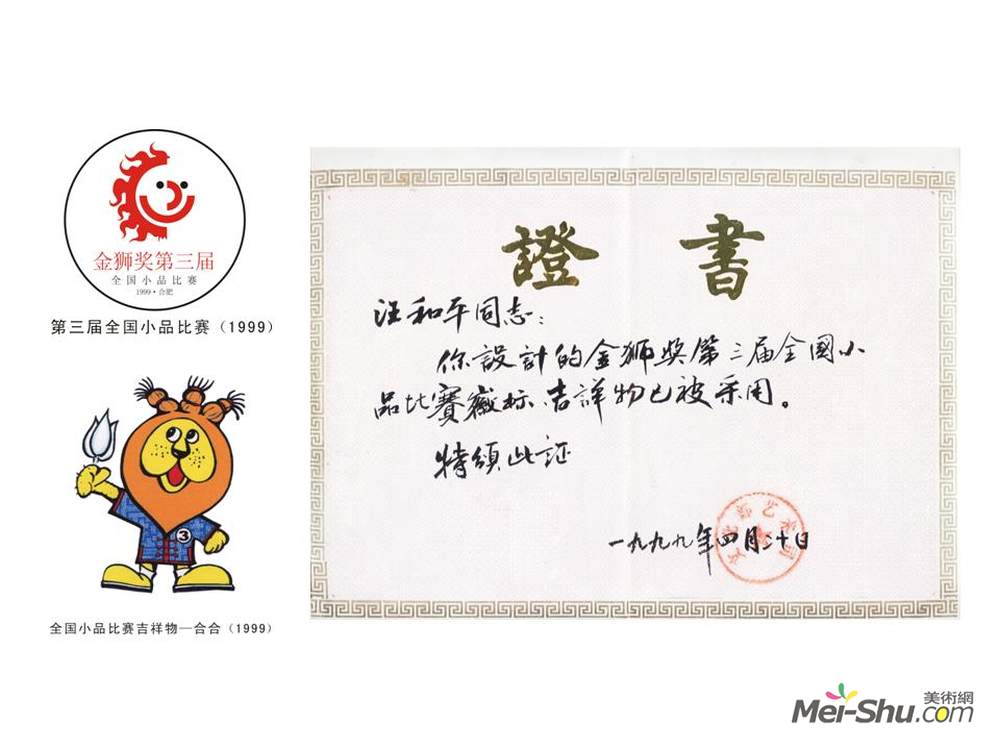 金狮奖第三届
全国小品比赛
1999•合肥
第三届全国小品比赛（1999）
③
全国小品比赛吉祥物—合合（1999）
證書
汪和平同志：
你設計的金狮奖第三届全國小
品比賽徽标、吉詳物已被采用。
特頒此证
一九九九年四月二十日
美術網
Mei-Shu.com